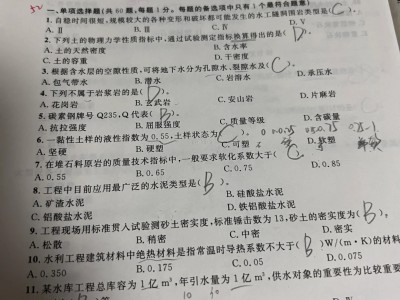 一、单项选择题(共 60 题，每题 1 分，每题的备选项中只有 1 个最符合题意)
1. 自稳时间很短，规模较大的各种变形和破坏都可能发生的水工隧洞围岩类型是( C )。
A. Ⅱ B. Ⅲ C. Ⅳ D. Ⅴ
2. 下列土的物理力学性质指标中，通过试验测定指标换算得出的是( D )。
A. 土的天然密度 B. 含水率
C. 土的容重 D. 干密度
3. 根据含水层的空隙性质，可将地下水分为孔隙水、裂隙水及( C )。
A. 包气带水 B. 潜水 C. 岩溶水 D. 承压水
4. 下列不属于岩浆岩的是( D )。
A. 花岗岩 B. 玄武岩 C. 安山岩 D. 片麻岩
5. 碳素钢牌号 Q235，Q 代表( B )。
A. 抗拉强度 B. 屈服强度 C. 质量等级 D. 含碳量
6. 一黏性土样的液性指数为 0.55，土样状态为( C )。
A. 坚硬 B. 硬塑 C. 可塑 D. 软塑
7. 在堆石料原岩的质量技术指标中，一般要求软化系数大于( C )。
A. 0.55 B. 0.65 C. 0.75 D. 0.85
8. 工程中目前应用最广泛的水泥类型是( B )。
A. 矿渣水泥 B. 硅酸盐水泥
C. 铝酸盐水泥 D. 铁铝酸盐水泥
9. 工程现场用标准贯入试验测砂土密实度，标准锤击数为 13，砂土的密实度为( B )。
A. 松散 B. 稍密 C. 中密 D. 密实
10. 水利工程建筑材料中绝热材料是指常温时导热系数不大于( B )W/(m·K)的材料
A. 0.350 B. 0.175 C. 0.05 D. 0.0
11. 某水库工程总库容为 1 亿 m³，年引水量为 1 亿 m³，供水对象的重要性为比较重要